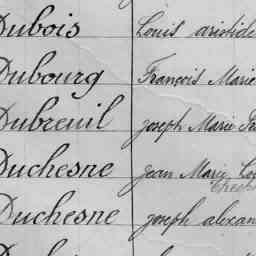 Dubois Louis aristide
Dubourg François Marie
Dubreuil joseph Marie
Duchesne jean Marie
Duchesne joseph alexan